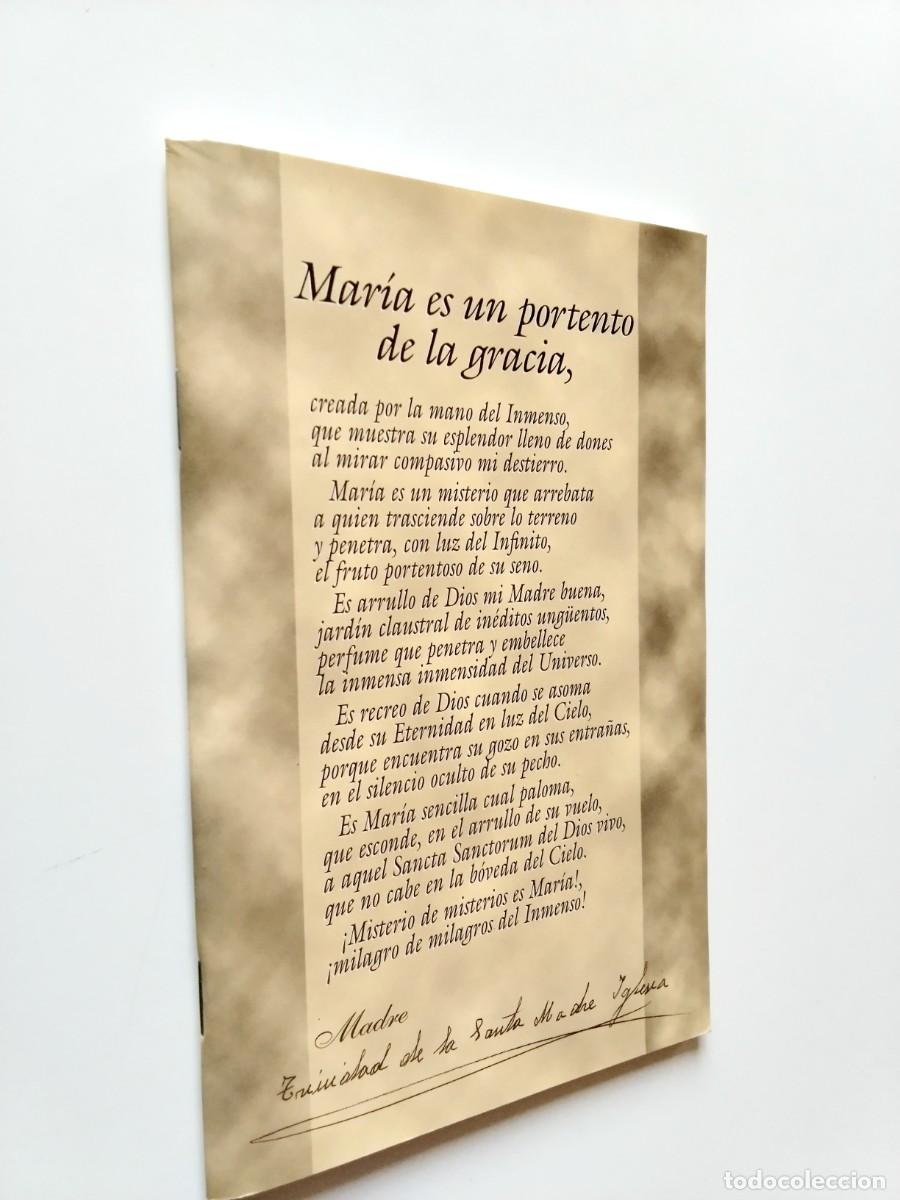 María es un portento
de la gracia,
creada por la mano del Inmenso,
que muestra su esplendor lleno de dones
al mirar compasivo mi destierro.
María es un misterio que arrebata
a quien trasciende sobre lo terreno
y penetra, con luz del Infinito,
el fruto portentoso de su seno.
Es arrullo de Dios mi Madre buena,
jardín claustral de inéditos ungüentos,
perfume que penetra y embellece
la inmensa inmensidad del Universo.
Es recreo de Dios cuando se asoma
desde su Eternidad en luz del Cielo,
porque encuentra su gozo en sus entrañas,
en el silencio oculto de su pecho.
Es María sencilla cual paloma,
que esconde, en el arrullo de su vuelo,
a aquel Sancta Sanctorum del Dios vivo,
que no cabe en la bóveda del Cielo.
¡Misterio de misterios es María!,
¡milagro de milagros del Inmenso!
Madre
Trinidad de la Santa Madre Iglesia
todocoleccion